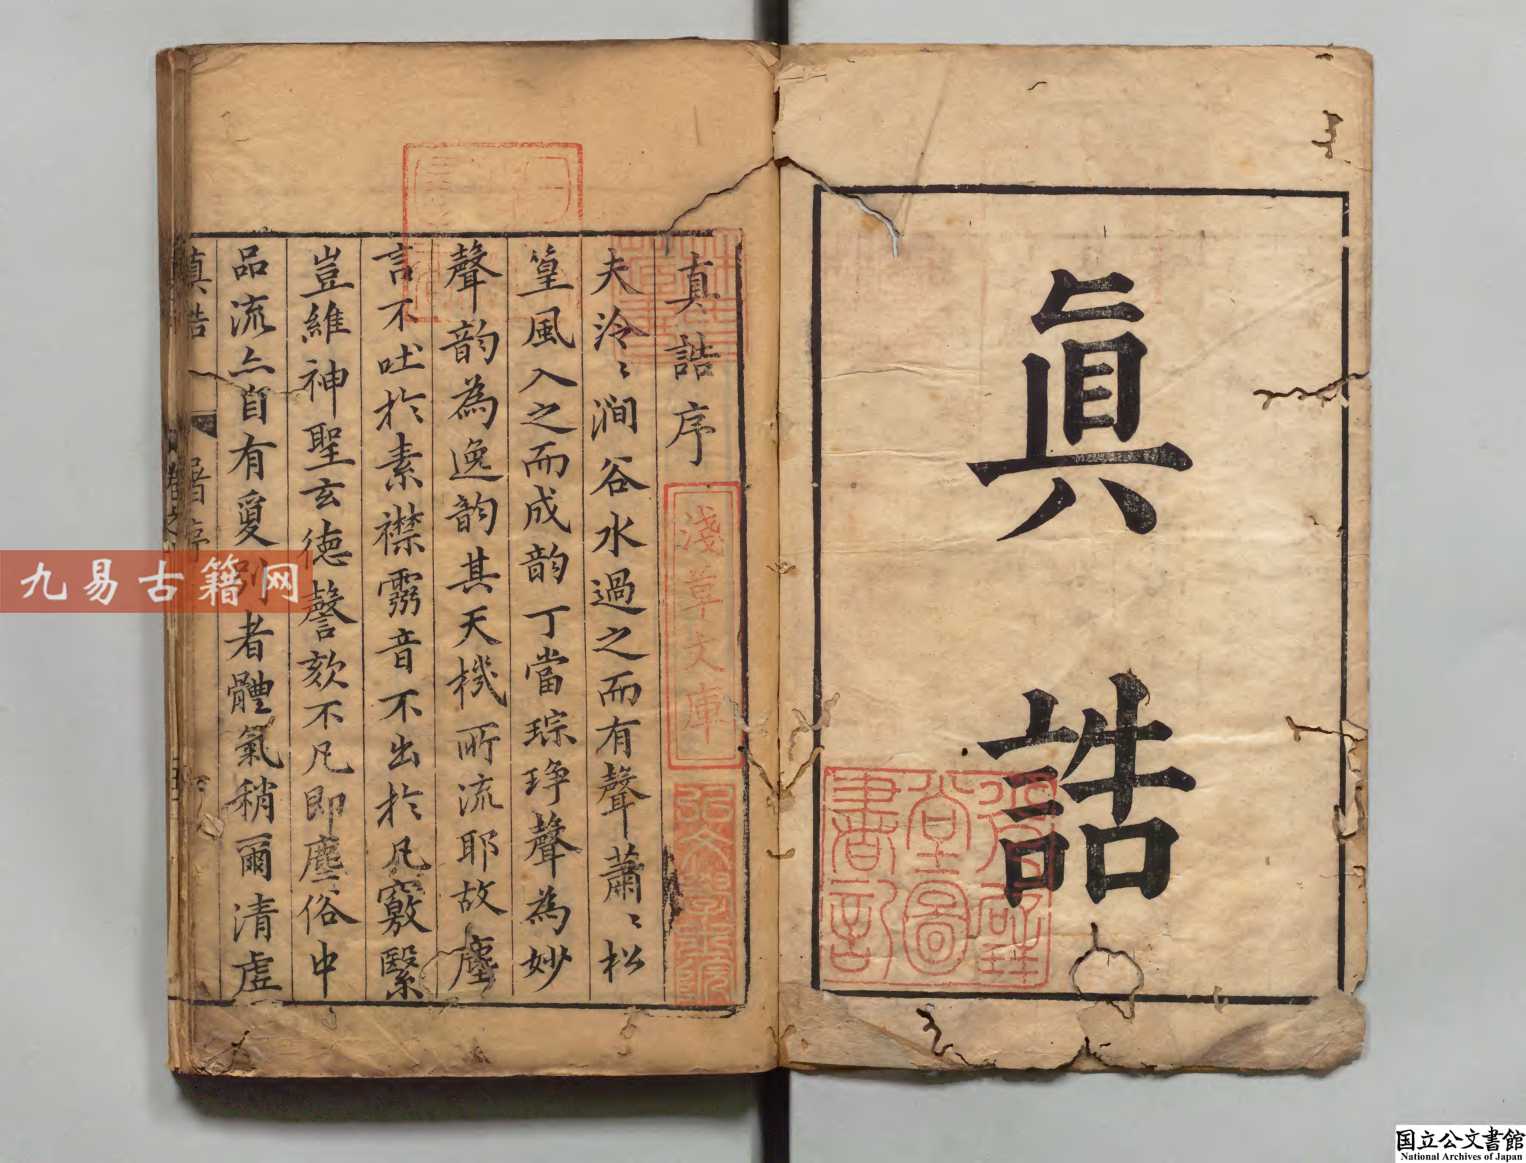 眞誥
真誥序
夫泠〻澗谷水過之而有聲蕭〻松
篁風入之而成韵丁當琮琤聲為妙
聲韵為逸韵其天機所流耶故塵
言不吐於素襟靈音不出於凡竅繄
豈維神聖玄德謦欬不凡即塵俗中
品流亦自有夐別者體氣稍爾清虛
真誥
淺草文庫
弘文學士院
圖書記
九易古籍网
国立公文書館
National Archives of Japan